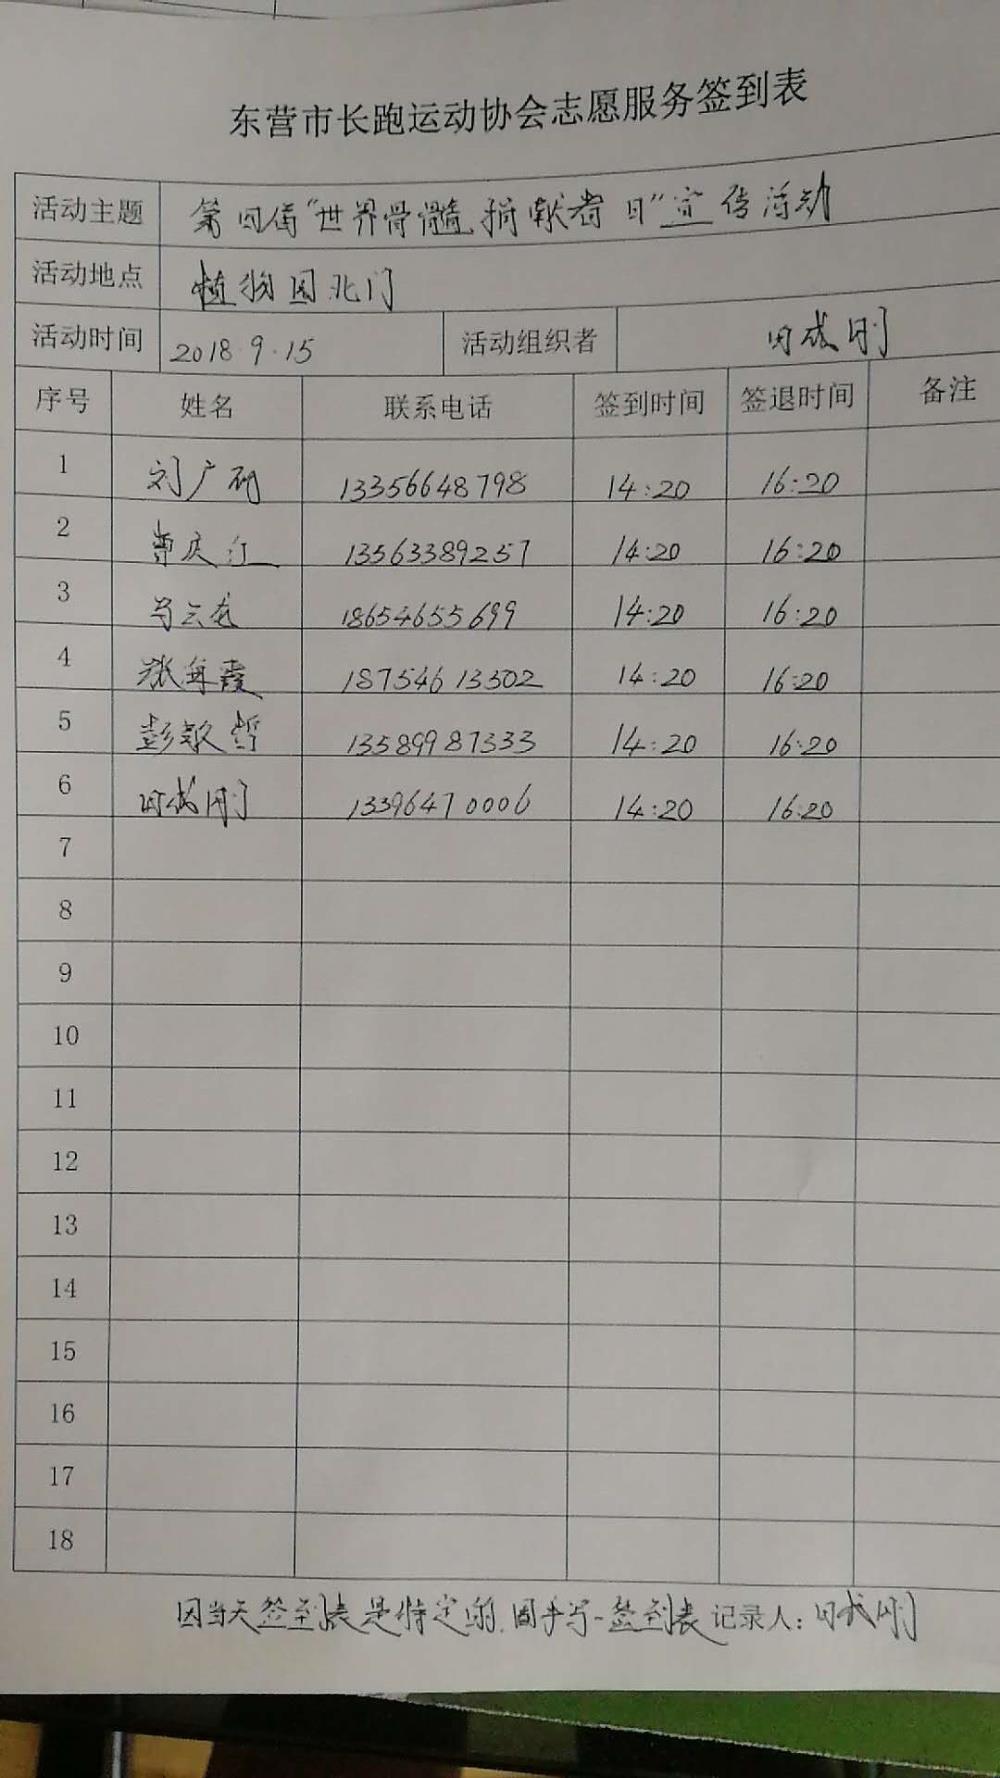 东营市长跑运动协会志愿服务签到表
活动主题 第四届“世界骨髓捐献者日”宣传活动
活动地点 植物园北门
活动时间 2018.9.15 活动组织者 成刚
序号 姓名 联系电话 签到时间 签退时间 备注
1 刘广 13356648798 14:20 16:20
2 曹庆江 13563389257 14:20 16:20
3 马云龙 18654655699 14:20 16:20
4 张海霞 18754613302 14:20 16:20
5 彭敬哲 13589987333 14:20 16:20
6 成刚 13396470006 14:20 16:20
7
8
9
10
11
12
13
14
15
16
17
18
因当天签到表是特定的,固手写一签到表 记录人: 成刚